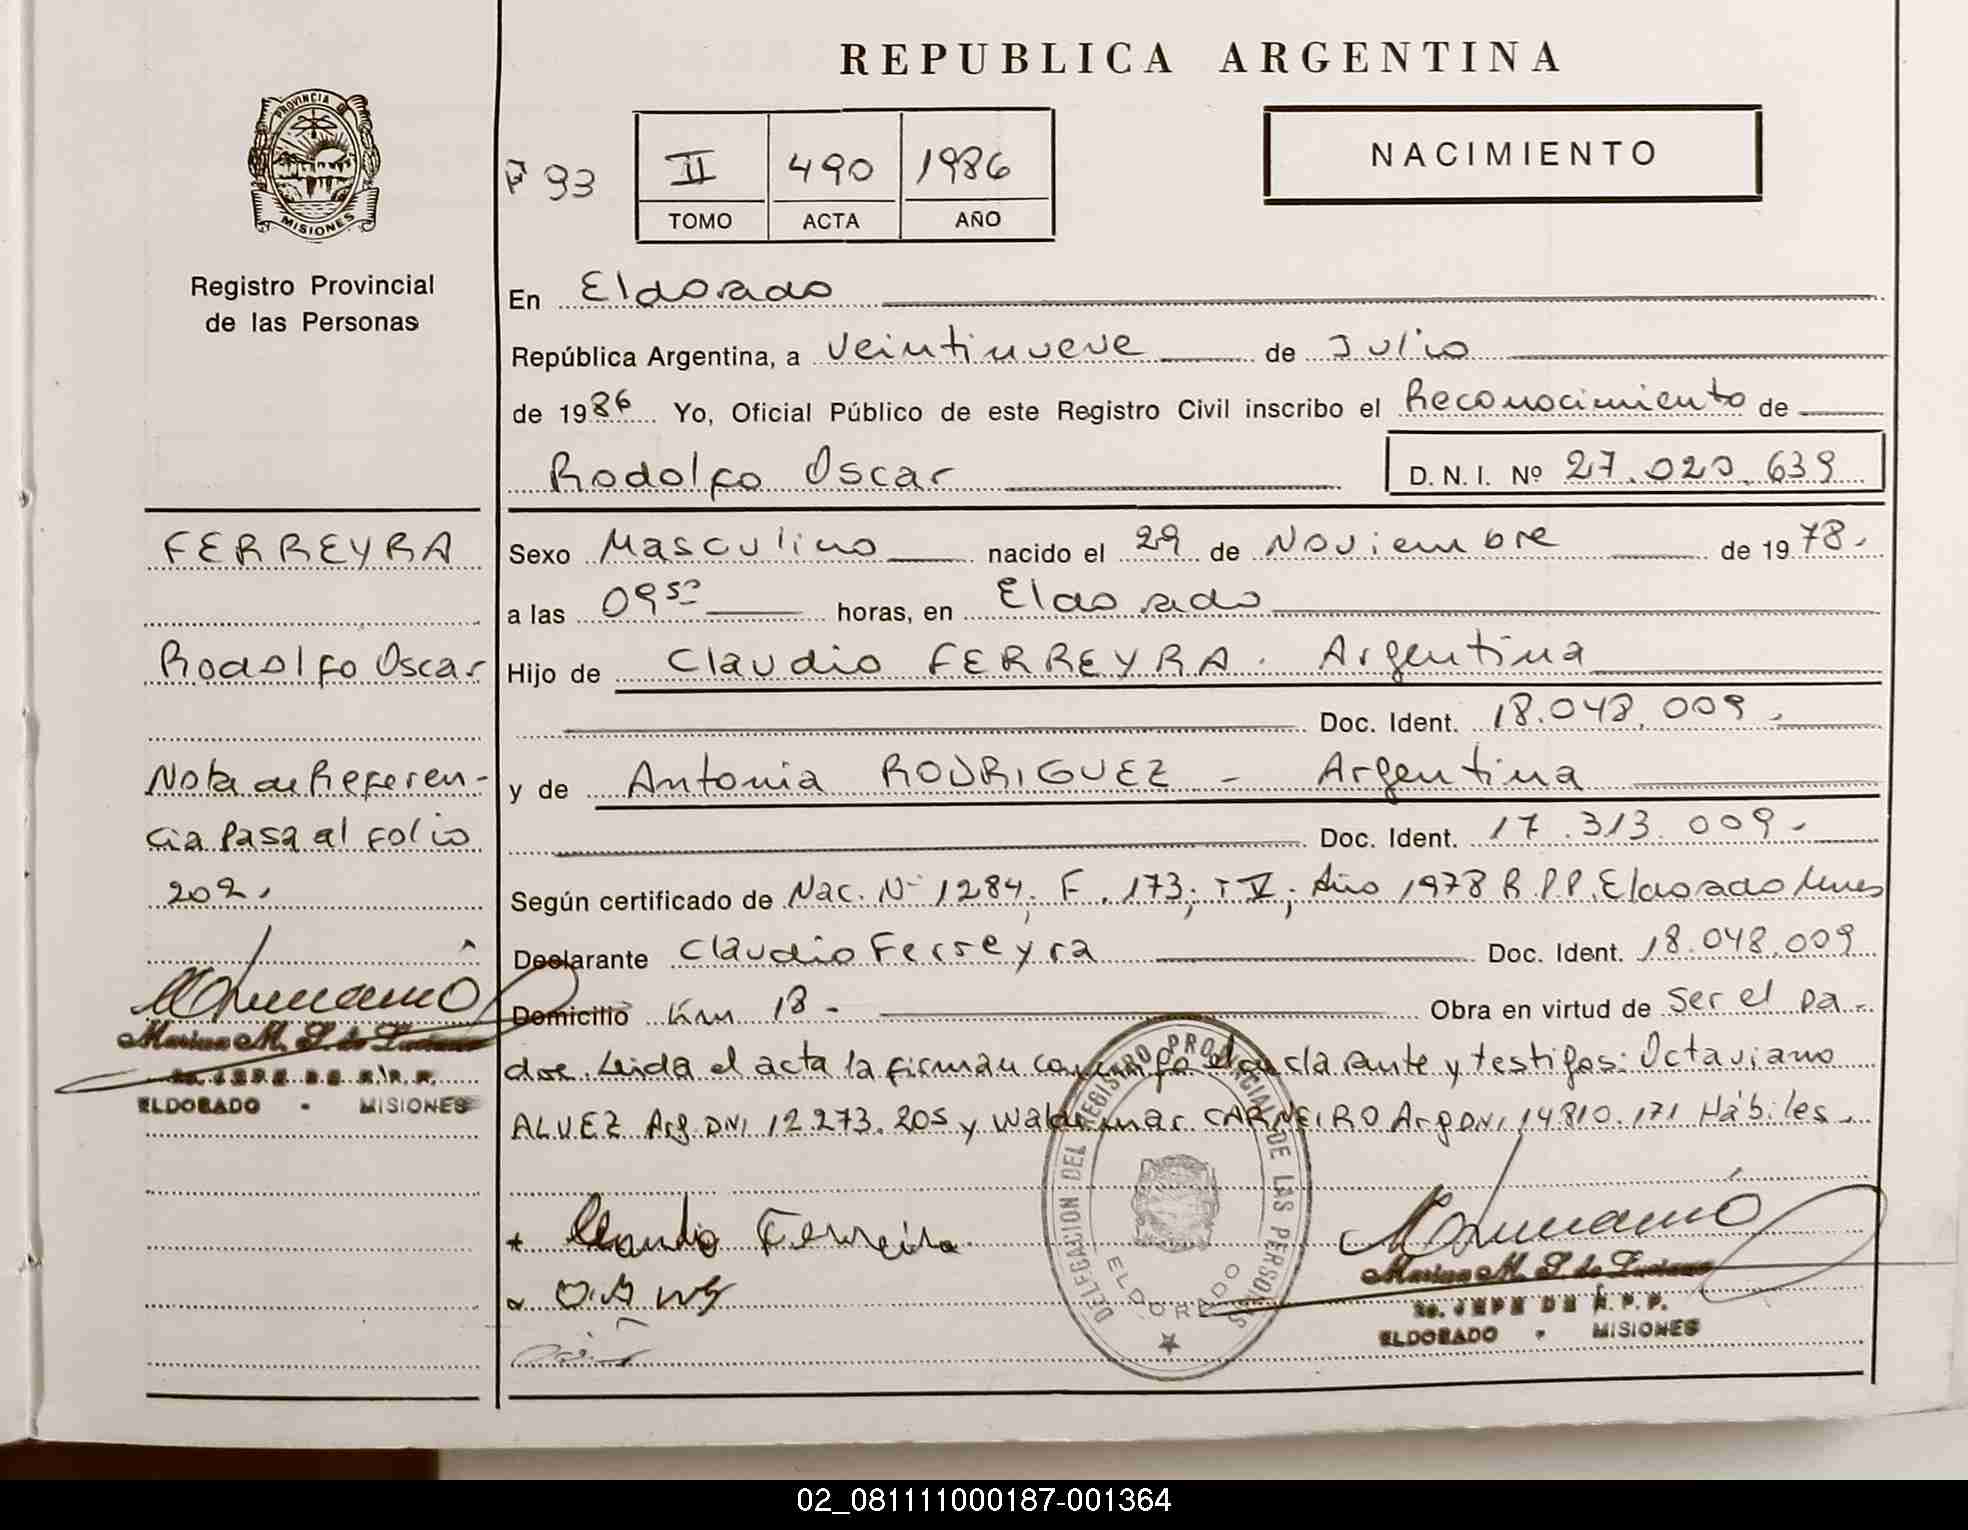 REPUBLICA ARGENTINA
PROVINCIA D
MISIONES
Registro Provincial
de las Personas
F 93
II 490 1986
TOMO ACTA AÑO
NACIMIENTO
En Eldorado
República Argentina, a veintinueve de Julio
de 1986 Yo, Oficial Público de este Registro Civil inscribo el Reconocimiento de
Rodolfo Oscar D. N. I. Nº 27.020.639
FERREYRA
Rodolfo Oscar
Nota de Referen-
cia Pasa al folio
202.
Marina M. S. de Luciano
2a. JEFE DE R.P.P.
ELDORADO - MISIONES
Sexo Masculino nacido el 29 de Noviembre de 1978.
a las 09 50 horas, en Eldorado
Hijo de Claudio FERREYRA. Argentina
Doc. Ident. 18.048.009.
y de Antonia RODRIGUEZ - Argentina
Doc. Ident. 17.313.009.
Según certificado de Nac. Nº 1284; F. 173; T V; Año 1978 R.P.P. Eldorado Mnes
Declarante Claudio Ferreyra Doc. Ident. 18.048.009
Domicilio Km 18 - Obra en virtud de ser el pa-
dre. Leida el acta la firman conmigo el declarante y testigos: Octaviano
ALVEZ Arg. DNI 12.273.205 y Waldemar CARNEIRO Arg DNI 14.810.171 Hábiles.
Claudio Ferreira
DELEGACION DEL REGISTRO PROVINCIAL DE LAS PERSONAS
ELDORADO
Marina M. S. de Luciano
2a. JEFE DE R.P.P.
ELDORADO - MISIONES
02_081111000187-001364